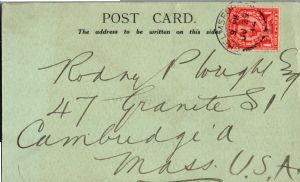 POST CARD.
The address to be written on this side
Rodney P Wright Esq
47 Granite St
Cambridge
Mass. U.S.A.